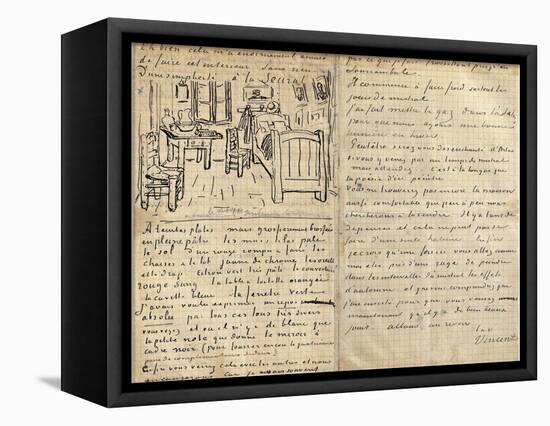 Eh bien cela m'a enormement amusé
de faire cet interieur sans rien
D'une simplicité à la Seurat
A teintes plates mais grossierement brossées
en pleine pâte les murs lilas pale
le sol d'un rouge rompu & fané les
chaises & le lit jaune de chrome les oreillers
et le drap citron vert très pâle la couverture
rouge sang la table à toilette orangée
la cuvette bleue la fenetre verte
J'avais voulu exprimer un repos
absolu par tous ces tons très divers
vous voyez et où il n'y a de blanc que
la petite note que donne le miroir à
cadre noir (pour fourrer encore la quatrieme
paire de complementaires dedans)
Enfin vous verrez cela avec les autres et nous
en causerons Car je ne sais souvent
pas ce que je fais travaillant presqu'en
somnambule
Il commence à faire froid surtout les
jours de mistral
J'ai fait mettre le gaz dans l'atelier
pour que nous ayons une bonne
lumière en hiver
Peutêtre serez vous desenchanté d'Arles
si vous y venez par un temps de mistral
mais attendez.. C'est à la longue que
la poésie d'ici pénètre
Vous ne trouverez pas encore la maison
aussi confortable que peu à peu nous
chercherons à la rendre Il y a tant de
dépenses et cela ne peut pas se
faire d'une seule haleine Enfin
je crois qu'une fois ici vous allez comme
moi etre pris d'une rage de peindre
dans les intervalles du mistral les effets
d'automne et que vous comprendrez que
j'aie insisté pour que vous veniez
maintenant qu'il y a de bien beaux
jours allons au revoir
t à v
Vincent